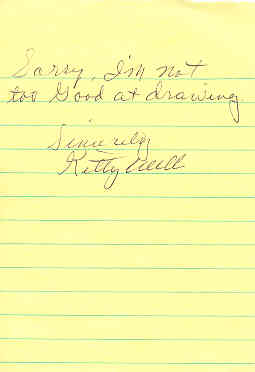 Sorry, I'm not
too Good at drawing
Sincerely
Kitty Wells